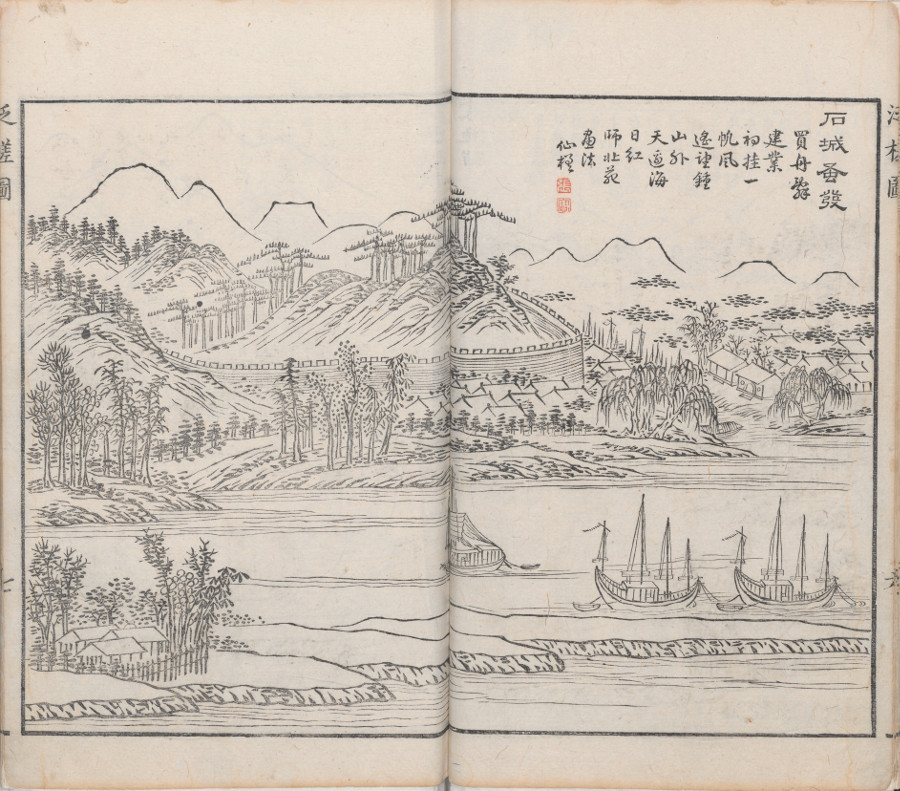 泛槎圖
石城蚤發
買舟辭
建業
初挂一
帆風
遙望鍾
山外
天邊海
日紅
師北苑
畫法
仙槎
泛槎圖
七